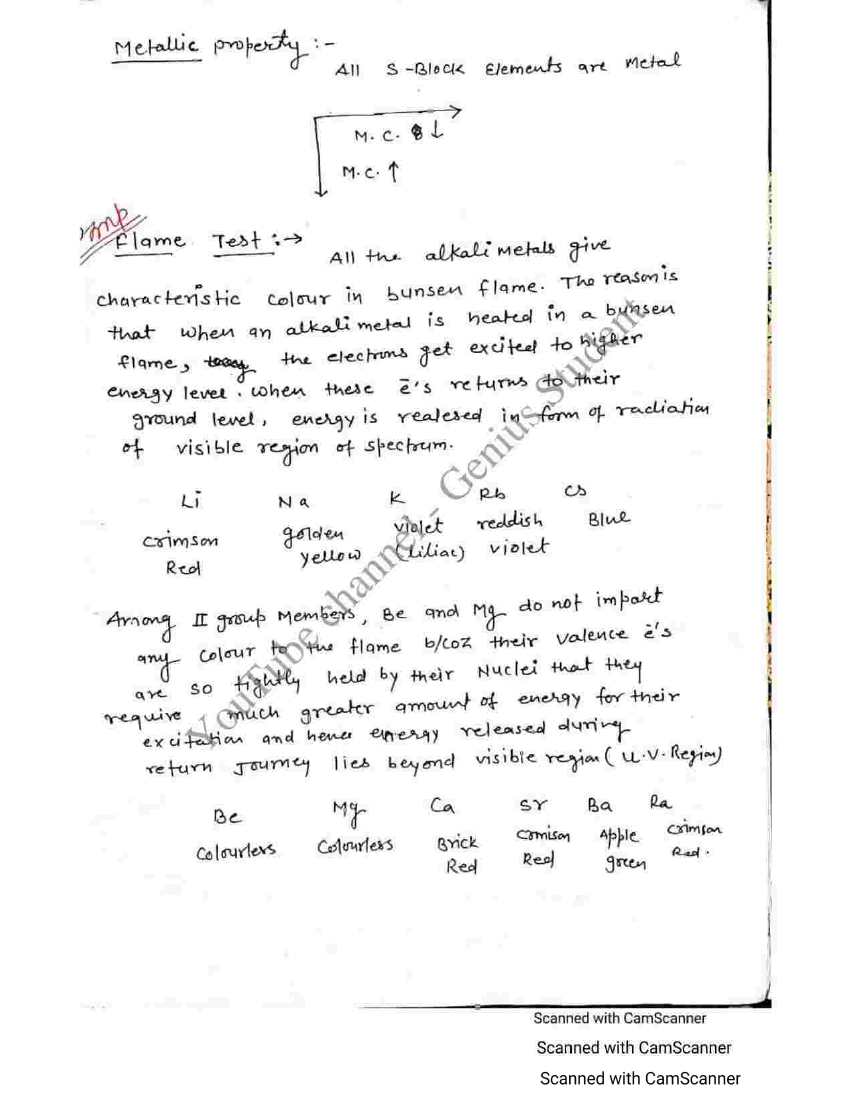 Metallic property :-
All S-Block Elements are Metal
M. C. ↓
M.C. ↑
Imp
Flame Test :→
All the alkali metals give
characteristic colour in bunsen flame. The reason is
that when an alkali metal is heated in a bunsen
flame, the electrons get excited to higher
energy level. when these ē's returns to their
ground level, energy is realesed in form of radiation
of visible region of spectrum.
Li Na K Rb Cs
crimson golden violet reddish Blue
Red yellow (liliac) violet
Among II group Members, Be and Mg do not impart
any colour to the flame b/coz their valence ē's
are so tightly held by their Nuclei that they
require much greater amount of energy for their
excitation and hence energy released during
return Journey lies beyond visible region (U.V. Region)
Be Mg Ca Sr Ba Ra
Colourless Colourless Brick Apple crimson
Red Red green Red.
YouTube channel - Genius Student
Scanned with CamScanner
Scanned with CamScanner
Scanned with CamScanner